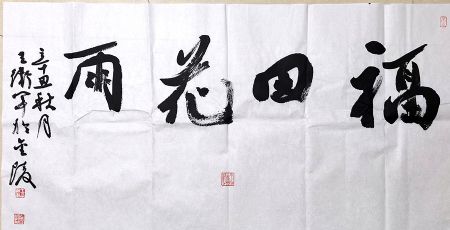 福田花雨
辛丑秋月
王衛军於金陵